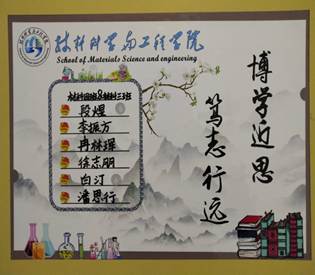 材料科学与工程学院
School of Materials Science and engineering
段煜
李振方
冉林琛
徐志朋
白汀
潘思行
博学近思
笃志行远